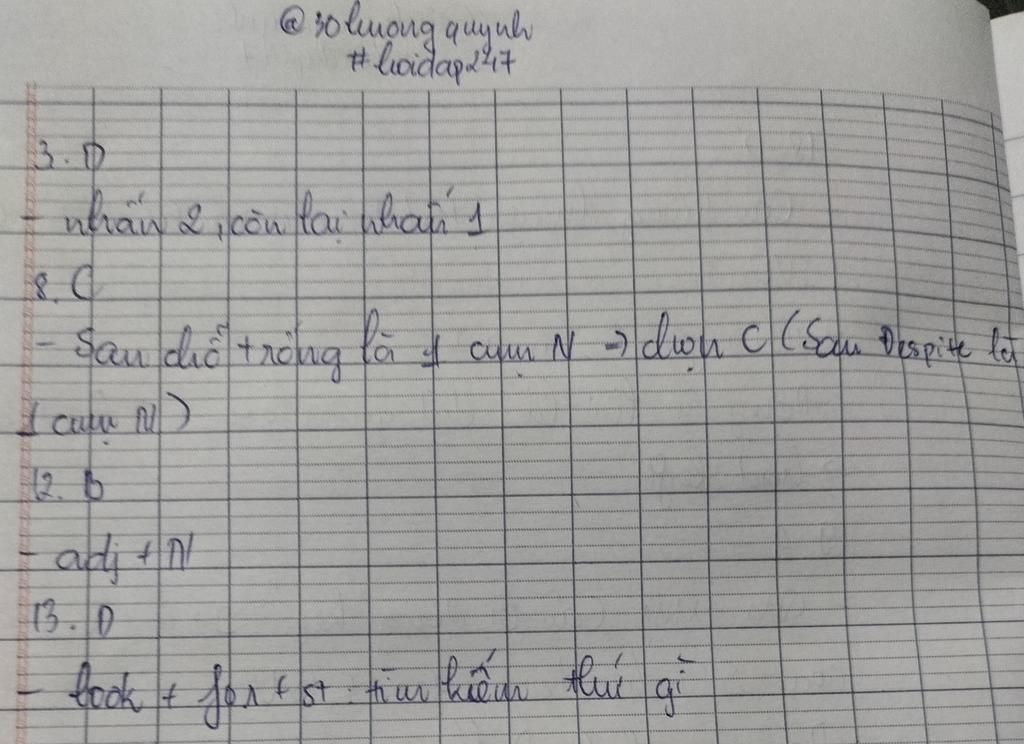 @30luongquynh
#hoidap247
3. D
- nhấn 2, còn lại nhấn 1
8. C
- Sau chỗ trống là 1 cụm N → chọn C (Sau Despite là
1 cụm N)
12. b
- adj + N
13. D
- look + for + st : tìm kiếm thứ gì